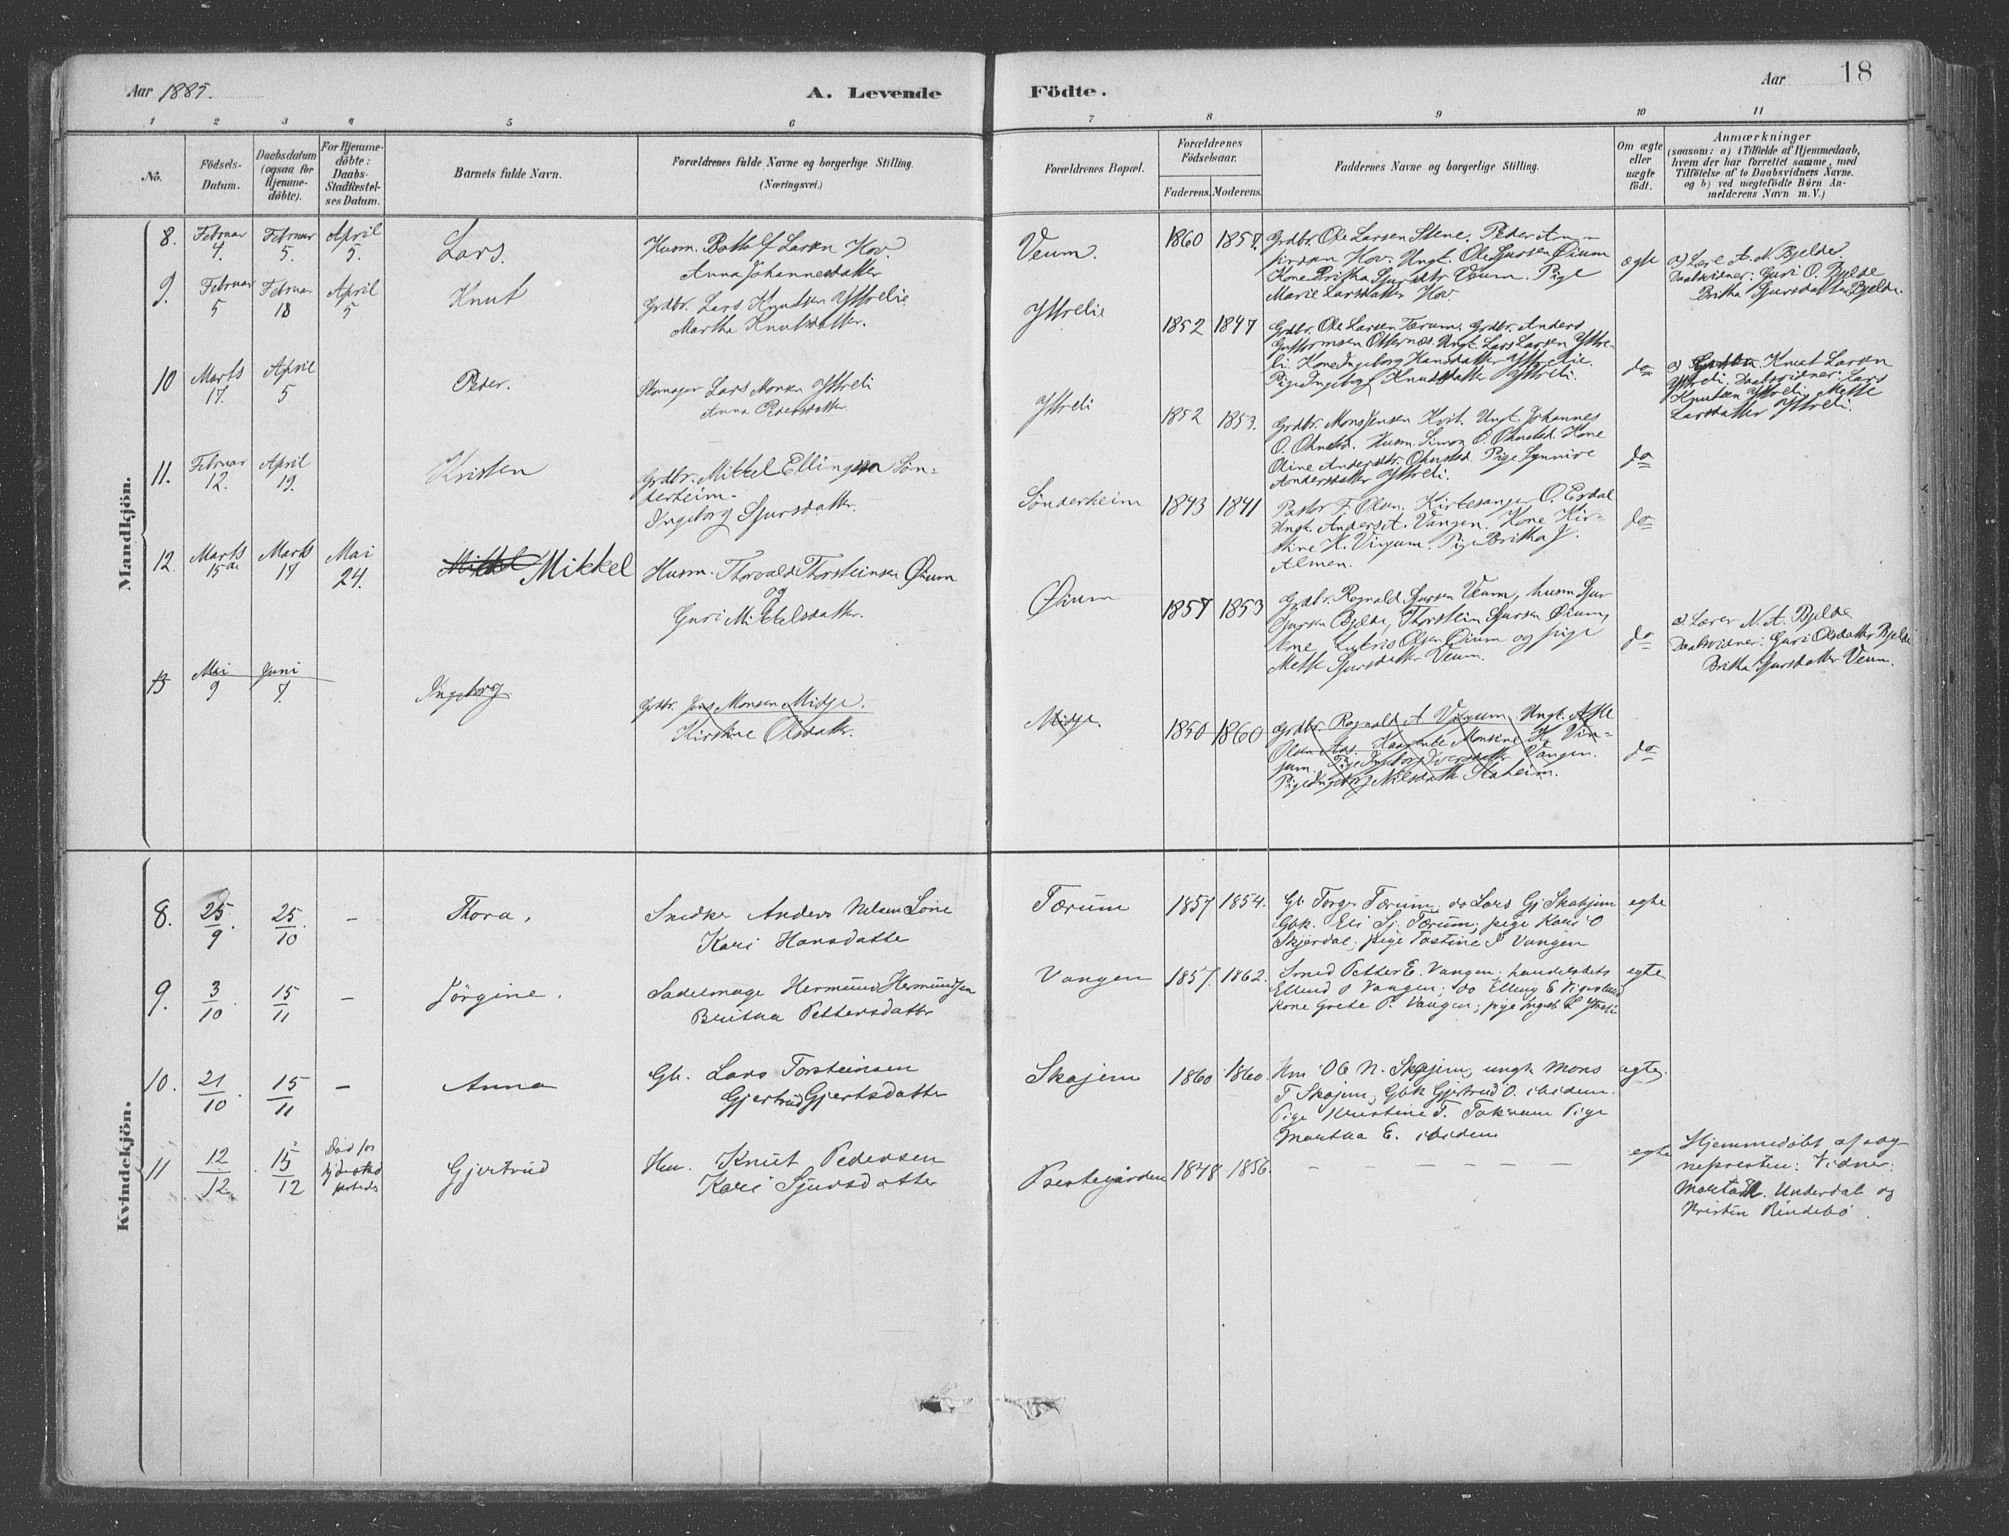 Aar 1885.
A. Levende
Födte.
Aar
18
1 2 3 4 5 6 7 8 9 10 11
No.
Födsels-
Datum.
Daabsdatum
(ogsaa for
Hjemme-
döbte).
For Hjemme-
döbte:
Daabs-
Stadfæstel-
ses Datum.
Barnets fulde Navn.
Forældrenes fulde Navne og borgerlige Stilling.
(Næringsvei.)
Forældrenes Bopæl.
Forældrenes
Födselsaar.
Faderens. Moderens.
Faddernes Navne og borgerlige Stilling.
Om ægte
eller
uægte
födt.
Anmærkninger
(saasom: a) i Tilfælde af Hjemmedaab,
hvem der har forrettet samme, med
Tilföielse af to Daabsvidners Navne.
og b) ved uægtefödte Börn An-
melderens Navn m. V.)
Mandkjön.
8. Februar 4. Februar 5. April 5. Lars.
Husm. Bottolf Larsen Hov.
Anna Johannesdatter
Veum. 1860 1857.
Grdbr. Ole Larsen Stene, Peder
Hov. Ungk. Ole Sjursen Øium
Kone Britha Sjursdtr Veum. Pige
Marie Larsdatter Hov.
ægte
a) Lærer A. N. Bjelde.
Daabsvidner: Guri O. Bjelde
Britha Sjursdatter Bjelde.
9. Februar 5 Februar 18 April 5 Knut
Grdbr. Lars Knutsen Yttrelie
Martha Knutsdatter.
Yttrelie 1852 1847
Grdbr. Ole Larsen Tærum. Grdbr. Anders
Guttormsen Otternes. Ungk. Lars Larsen Yttre-
li. Kone Ingeborg Hansdatter Yttrelie.
Pige Ingeborg Knutsdatter Yttreli.
do
a) Knut Larsen
Yttreli. Daabsvidner: Lars
Knutsen Yttreli, Mette
Larsdatter Yttreli.
10 Marts 17. April 5 Peder.
Lars Monsen Yttreli
Anna Pedersdatter.
Yttreli 1852 1853.
Grdbr. Mons Jensen Kvit. Ungk. Johannes
O. Ohnstad. Husm. Simon O. Ohnstad. Kone
Oline Andersdtr. Ohnstad. Pige Synnive
Andersdatter Yttreli.
do
11. Februar 12. April 19. Kristen
Grdbr. Mikkel Ellingsen Søn-
derheim.
Ingeborg Sjursdatter.
Sønderheim 1843 1841
Pastor F. Olsen. Kirkesanger O. Erdal
Ungk. Anders A. Vangen. Kone Kir-
stine K. Vinjum. Pige Britha J.
Almen.
do
12. Marts 15de Marts 17 Mai 24. Mikkel Mikkel
Husm. Thorvald Thorsteinsen Øium
og
Guri Mikkelsdatter.
Øium 1857 1853
Grdbr. Rognald Sjursen Veum, husm Sjur
Sjursen Bjelde, Thorstein Sjursen Øium,
Kone Olsen Øium og pige
Mette Sjursdatter Veum.
do
a) Lærer N. A. Bjelde
Daabsvidner: Guri Olsdatter Bjelde
Britha Sjursdatter Veum.
13 Mai 9 Juni 7. Ingeborg
Grdbr. Jens Monsen Midje.
Kirstine Olsdatter.
Midje. 1850 1860
Grdbr. Rognald A Vinjum. Ungk. Atle
Olsen Aas. Monsine H. Vin-
jum. Pige Ingeborg Iversdatter Vangen.
Pige Ingeborg Nilsdatter Stateim.
do
Kvindekjön.
8. 25/9 25/10. – Thora.
Snedker Anders Nelsen Lone
Kari Hansdatte
Tærum 1857 1854.
Gb. Torger Tærum, do Lars Gj Skahjem
Gbk. Eli Sj. Tærum, pige Kari O
Skjerdal, pige Tostine P Vangen
egte
9. 3/10. 15/11 – Jörgine.
Sadelmage Hermund Hermundsen
Britha Pettersdatter
Vangen 1857. 1862.
Smed Petter E. Vangen, handelsbets
Ellend O Vangen, do Elling E
Kone Grete P. Vangen, pige
egte
10. 21/10. 15/11 – Anna
Gb. Lars Torsteinsen
Gjertrud Gjertsdatte
Skajem 1860 1860.
Hm Ole N. Skajem, ungk Mons
T Skajem, Gbk Gjertrud O. ibidem.
Pige Kristine T. Tokvam Pige
Martha E. ibidem
egte.
11 12/12 15/12 Död for
Gjertrud
Hm. Knut Pedersen
Kari Sjursdatter
Prestegården 1848 1856.
– – – – – –
egte
Hjemmedöbt af sog
nepresten: Vidner:
Marta H. Underdal og
Kristin Rindebö.